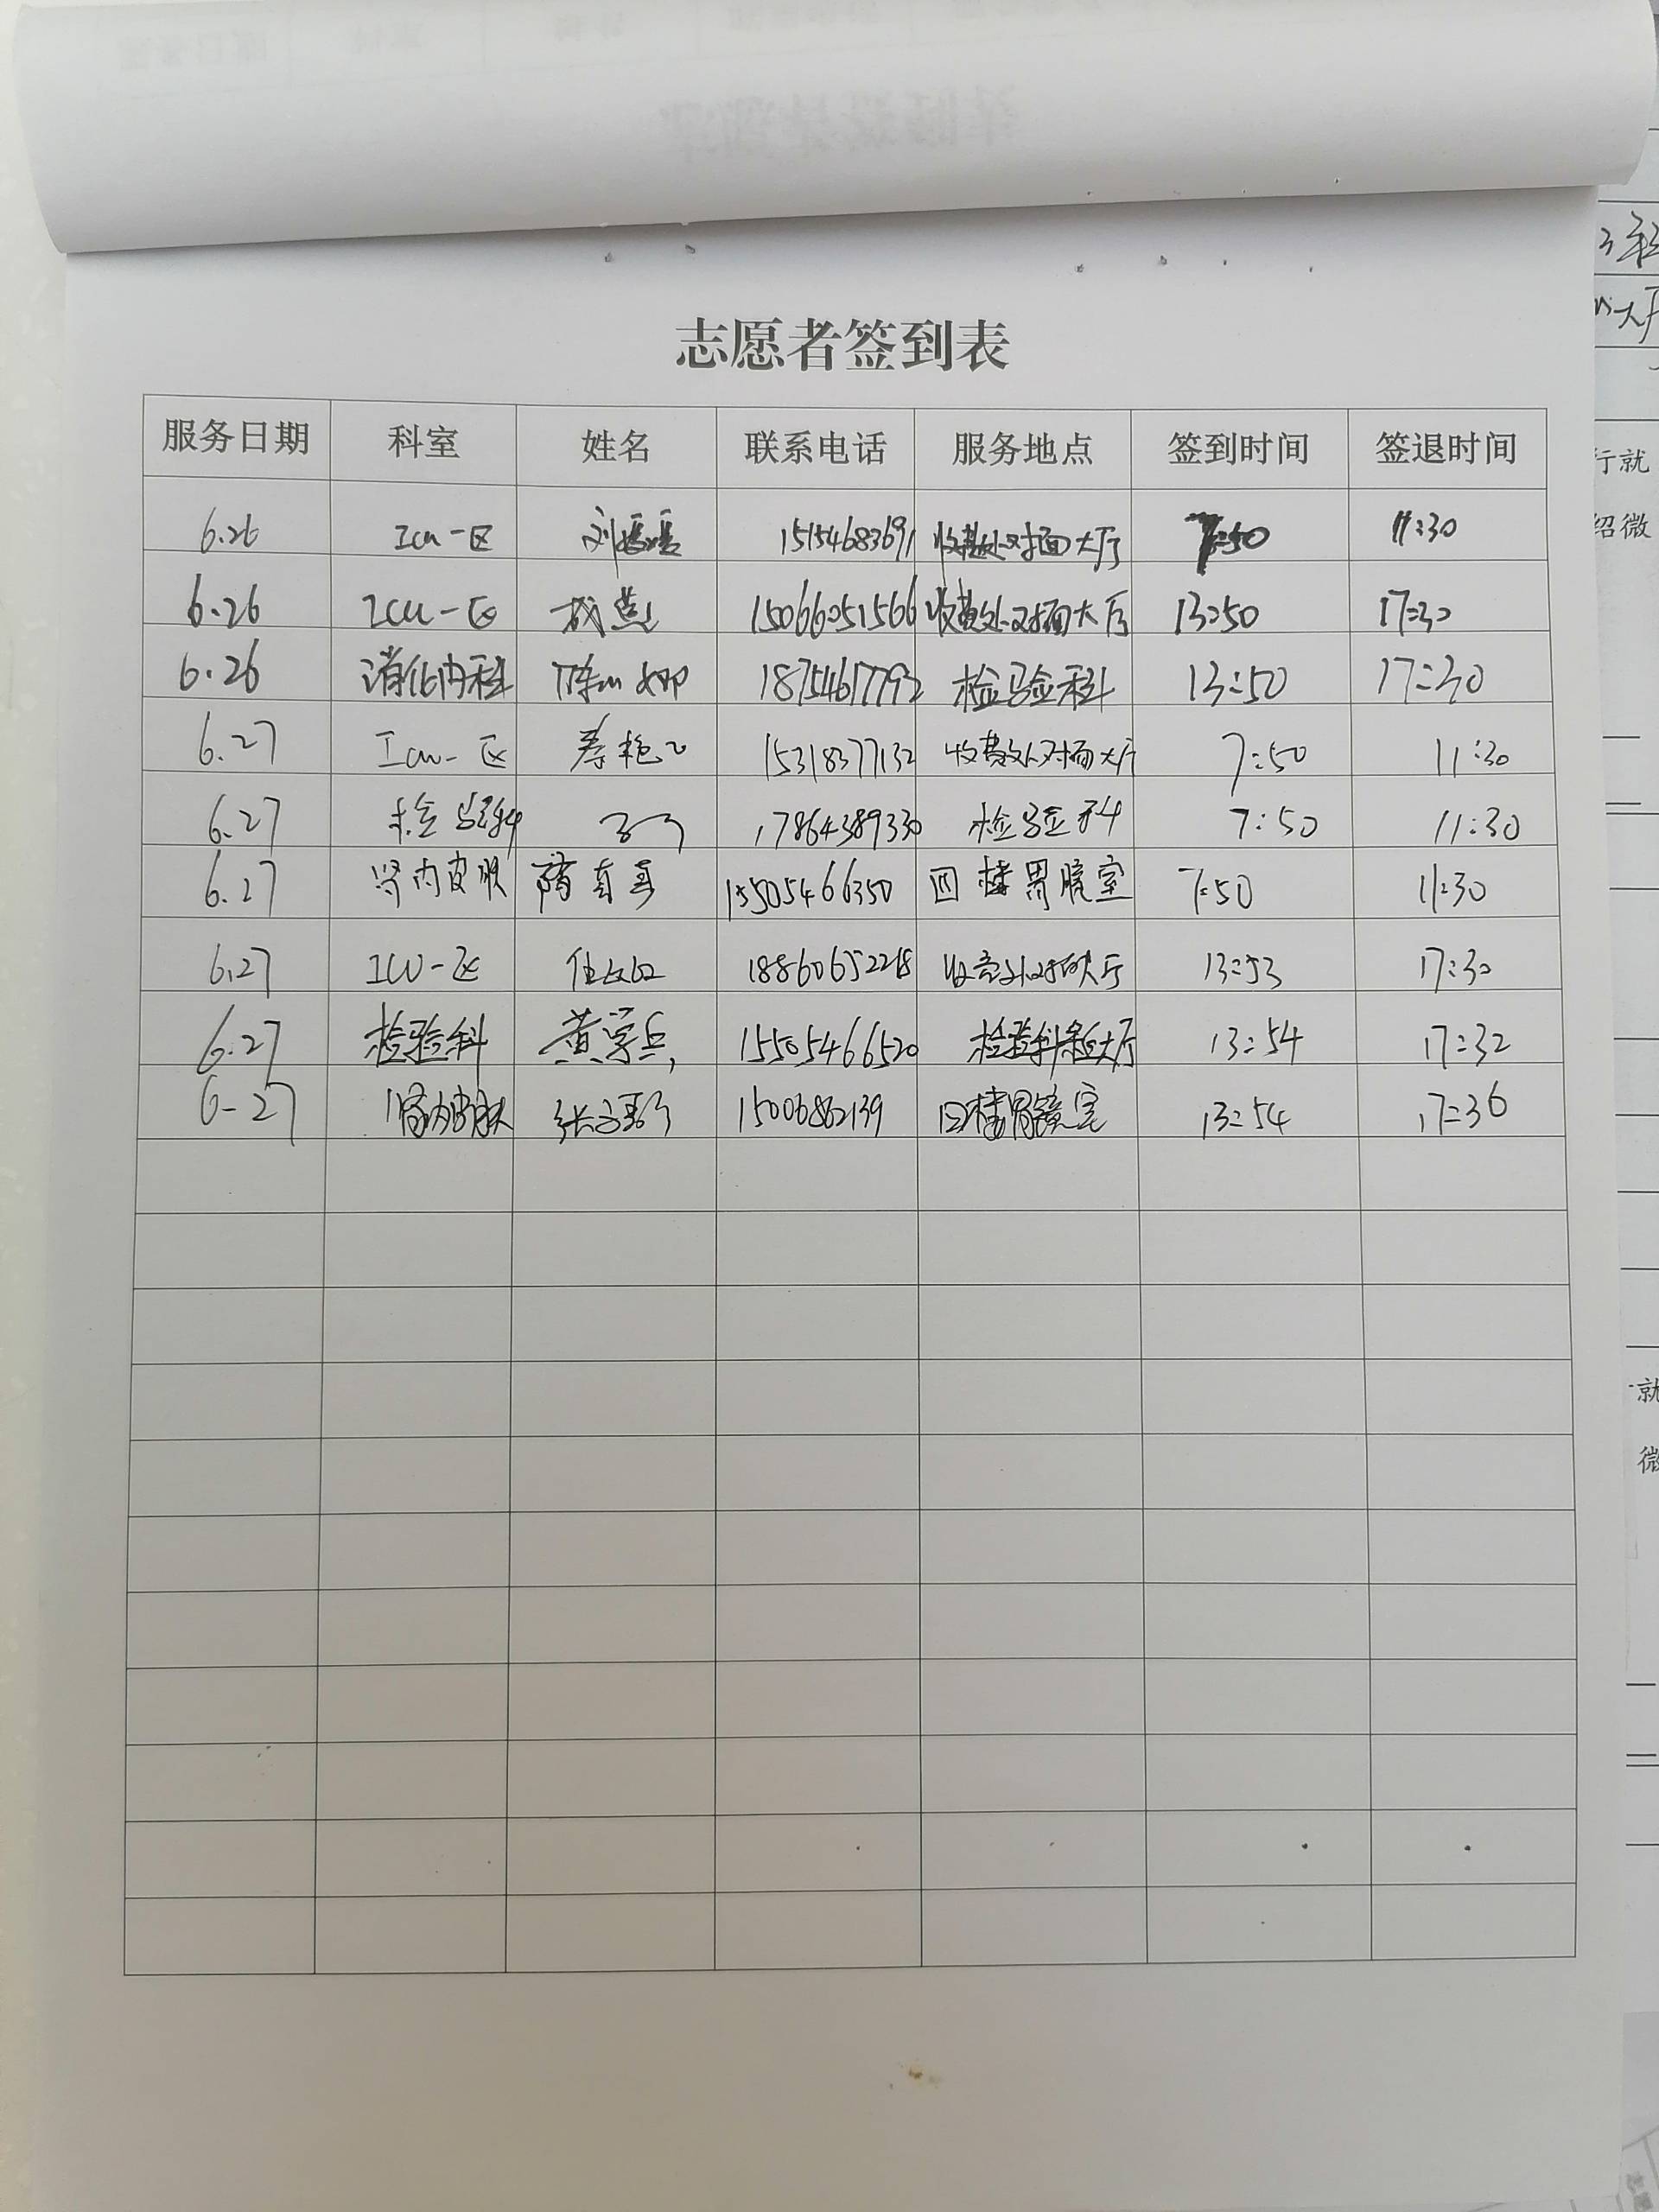 志愿者签到表
服务日期 科室 姓名 联系电话 服务地点 签到时间 签退时间
6.26 Icu一区 刘媛媛 15154683691 收费处对面大厅 7:50 11:30
6.26 ICU一区 15066051566 收费处对面大厅 13:50 17:30
6.26 消化内科 陈 18754617792 检验科 13:50 17:30
6.27 Icu一区 15318377132 收费处对面大厅 7:50 11:30
6.27 检验科 17864389330 检验科 7:50 11:30
6.27 肾内皮肤 15505466350 四楼胃镜室 7:50 11:30
6.27 ICU一区 收费处对面大厅 13:53 17:30
6.27 检验科 黄学兵 15505466520 检验科 大厅 13:54 17:32
6-27 肾内皮肤 张 四楼胃镜室 13:54 17:36
行就
绍微
就
微